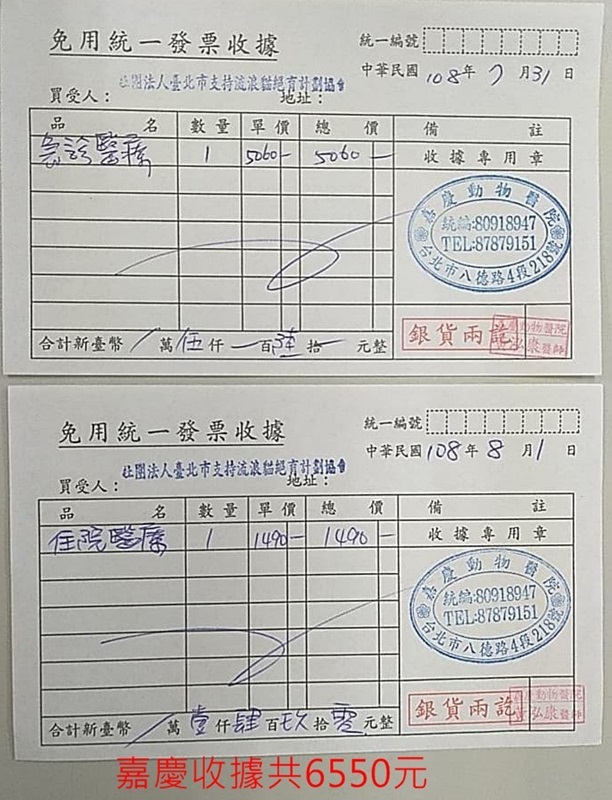 免用統一發票收據
統一編號
社團法人臺北市支持流浪貓絕育計劃協會
中華民國 108年 7月31日
買受人：
地址：
品名 數量 單價 總價 備註
急診醫療 1 5060— 5060—
收據專用章
嘉慶動物醫院
統編:80918947
TEL:87879151
台北市八德路4段218號
銀貨兩訖
動物醫院
泓康醫師
合計新臺幣 / 萬 伍 仟 — 百 陸 拾 — 元整
免用統一發票收據
統一編號
社團法人臺北市支持流浪貓絕育計劃協會
中華民國 108年 8月1日
買受人：
地址：
品名 數量 單價 總價 備註
住院醫療 1 1490— 1490—
收據專用章
嘉慶動物醫院
統編:80918947
TEL:87879151
台北市八德路4段218號
銀貨兩訖
動物醫院
泓康醫師
合計新臺幣 / 萬 壹 仟 肆 百 玖 拾 零 元整
嘉慶收據共6550元